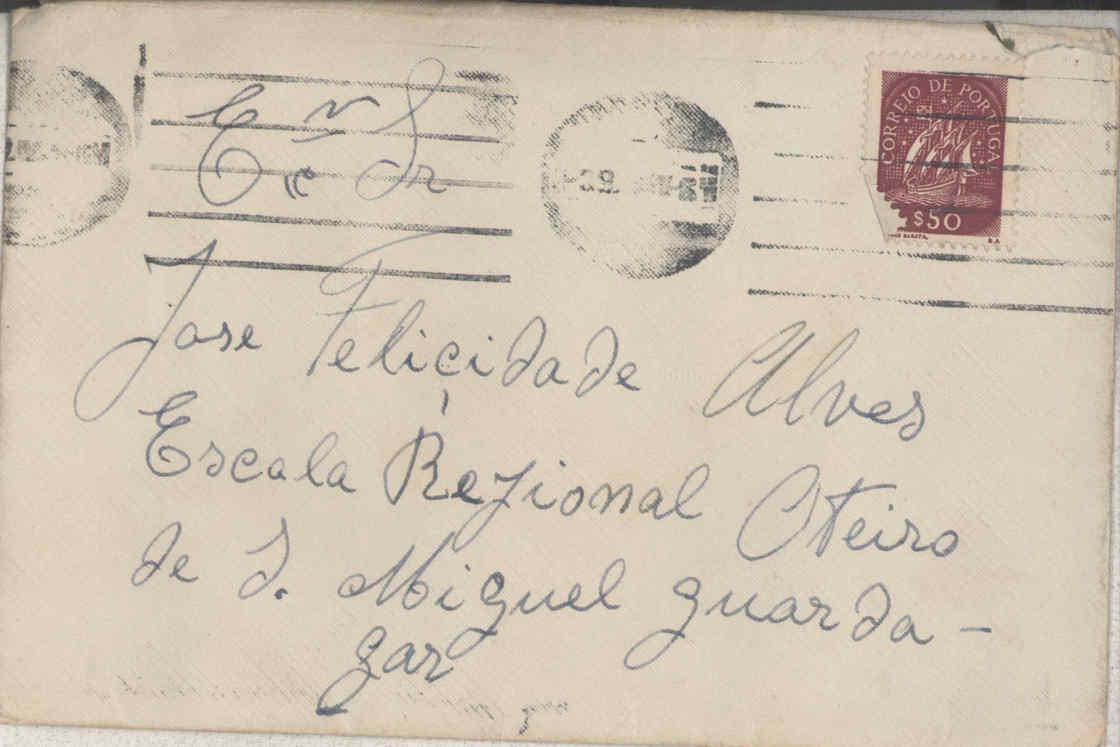 Exmo Sr
CORREIO DE PORTUGAL
$50
Jose Felicidade Alves
Escala Rejional Oteiro
de S. Miguel guarda -
gar